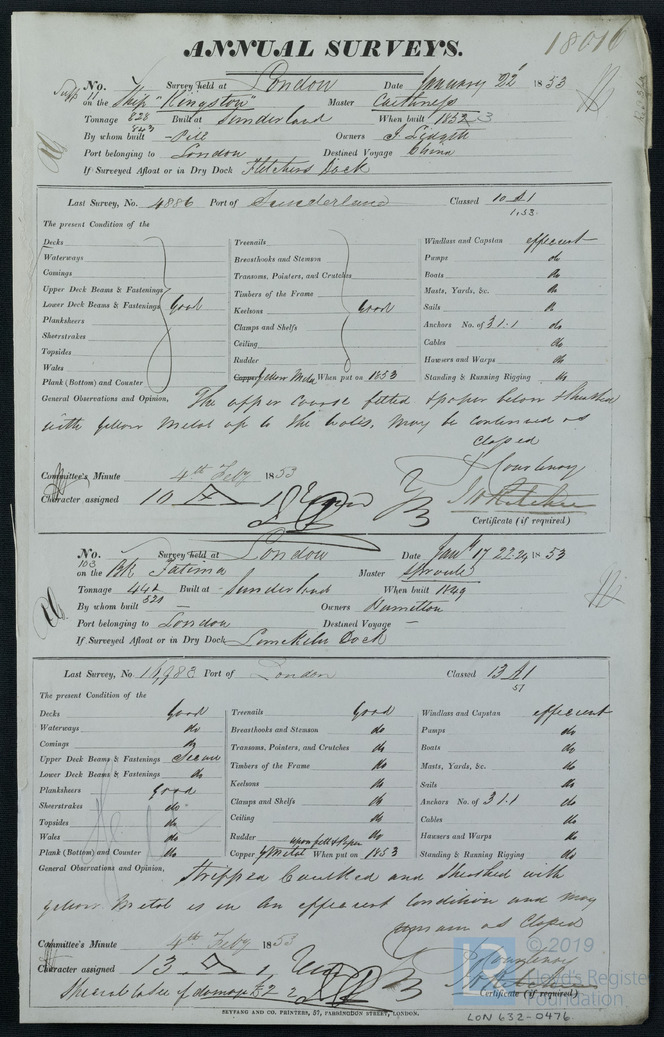 ANNUAL SURVEYS.
18016
No. 11 Survey held at London Date January 22 1853
on the Ship "Kingston" Master Caithness
Tonnage 828 Built at Sunderland When built 1852
843
By whom built Pile Owners
Port belonging to London Destined Voyage China
If Surveyed Afloat or in Dry Dock Fletchers Dock
Last Survey, No. 4886 Port of Sunderland Classed 10 A1
1,53
The present Condition of the
Decks
Waterways
Comings
Upper Deck Beams & Fastenings
Lower Deck Beams & Fastenings Good
Planksheers
Sheerstrakes
Topsides
Wales
Plank (Bottom) and Counter
Treenails
Breasthooks and Stemson
Transoms, Pointers, and Crutches
Timbers of the Frame
Keelsons Good
Clamps and Shelfs
Ceiling
Rudder
Copper Yellow Metal When put on 1853
Windlass and Capstan efficient
Pumps do
Boats do
Masts, Yards, &c. do
Sails do
Anchors No. of 3.1.1 do
Cables do
Hawsers and Warps do
Standing & Running Rigging do
General Observations and Opinion, The upper course felted & paper below & sheathed
with yellow metal up to the wales, may be continued as
classed
Committee's Minute 4th Feby 1853
Character assigned 10 A 1
Certificate (if required)
No. 103 Survey held at London Date Jany 17 22.24 1853
on the Bk Fatima Master Sproule
Tonnage 442 Built at Sunderland When built 1849
521
By whom built — Owners Hamilton
Port belonging to London Destined Voyage —
If Surveyed Afloat or in Dry Dock Limekiln Dock
Last Survey, No. 16,983 Port of London Classed 13 A1
51
The present Condition of the
Decks Good
Waterways do
Comings do
Upper Deck Beams & Fastenings Secure
Lower Deck Beams & Fastenings do
Planksheers good
Sheerstrakes do
Topsides do
Wales do
Plank (Bottom) and Counter do
Treenails Good
Breasthooks and Stemson do
Transoms, Pointers, and Crutches do
Timbers of the Frame do
Keelsons do
Clamps and Shelfs do
Ceiling do
Rudder do
upon felt & paper
Copper Y Metal When put on 1853
Windlass and Capstan efficient
Pumps do
Boats do
Masts, Yards, &c. do
Sails do
Anchors No. of 3 1.1 do
Cables do
Hawsers and Warps do
Standing & Running Rigging do
General Observations and Opinion, Stripped Caulked and Sheathed with
yellow Metal is in an efficient Condition and may
remain as Classed
Committee's Minute 4th Feby 1853
Character assigned 13 A 1
Certificate (if required)
SEYFANG AND CO. PRINTERS, 57, FARRINGDON STREET, LONDON.
LON 632-0476
©2019
Lloyd's Register
Foundation